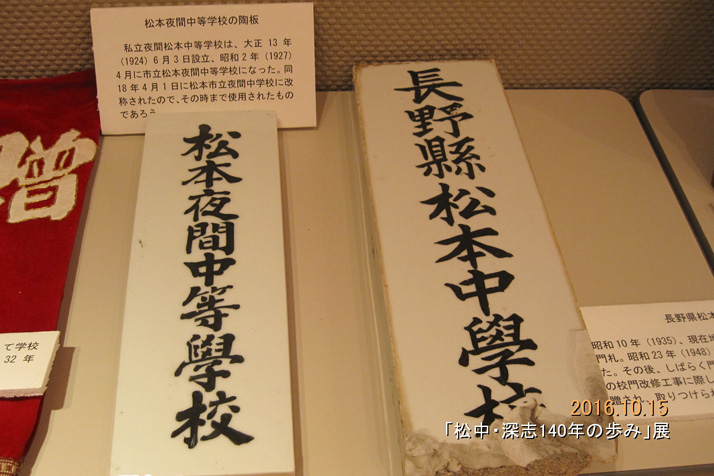 松本夜間中等学校の陶板
私立夜間松本中等学校は、大正 13 年
(1924) 6月3日設立、昭和2年 (1927)
4月に市立松本夜間中等学校になった。同
18年4月1日に松本市立夜間中学校に改
称されたので、その時まで使用されたもの
であろう
松本夜間中等學校
長野縣松本中學校
贈
て学校
32 年
長野県松本
昭和10年 (1935)、現在地
門札。昭和23年 (1948)
た。その後、しばらく門
の校門改修工事に際し
贈され、取りつけられ
2016.10.15
「松中・深志140年の歩み」展